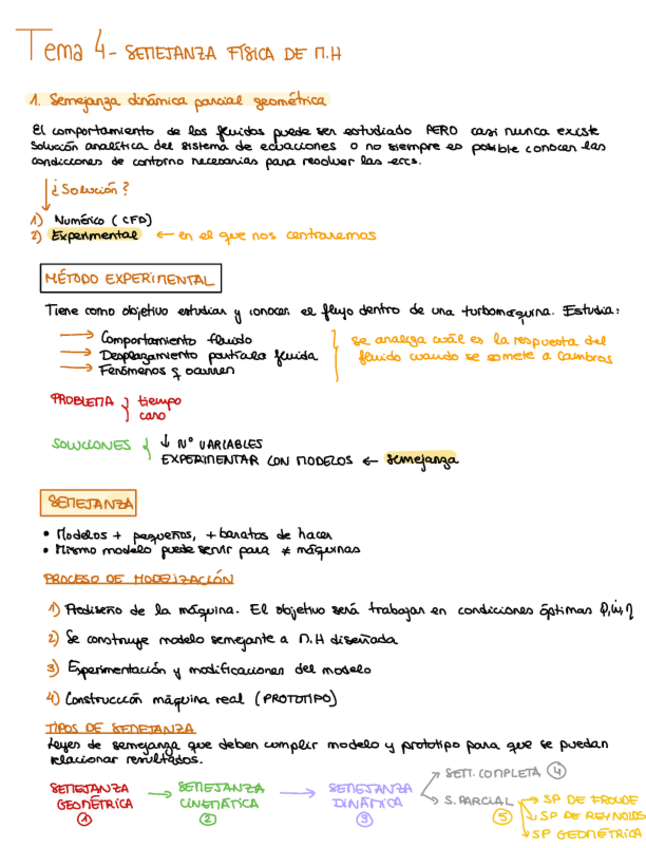 Tema 4- SEMEJANZA FÍSICA DE M.H
1. Semejanza dinámica parcial geométrica
El comportamiento de los fluidos puede ser estudiado PERO casi nunca existe
solución analítica del sistema de ecuaciones o no siempre es posible conocer las
condiciones de contorno necesarias para resolver las eccs.
¿Solución?
1) Numérico (CFD)
2) Experimental ← en el que nos centraremos
MÉTODO EXPERIMENTAL
Tiene como objetivo estudiar y conocer el flujo dentro de una turbomáquina. Estudia:
→ Comportamiento fluido
→ Desplazamiento partícula fluida
→ Fenómenos q ocurren
se analiza cuál es la respuesta del
fluido cuando se somete a cambios
PROBLEMA } tiempo
caro
SOLUCIONES { ↓ Nº VARIABLES
EXPERIMENTAR CON MODELOS ← semejanza
SEMEJANZA
• Modelos + pequeños, + baratos de hacer
• Mismo modelo puede servir para ≠ máquinas
PROCESO DE MODELIZACIÓN
1) Prediseño de la máquina. El objetivo será trabajar en condiciones óptimas
2) Se construye modelo semejante a M.H diseñada
3) Experimentación y modificaciones del modelo
4) Construcción máquina real (PROTOTIPO)
TIPOS DE SEMEJANZA
Leyes de semejanza que deben cumplir modelo y prototipo para que se puedan
relacionar resultados.
SEMEJANZA GEOMÉTRICA ① → SEMEJANZA CINEMÁTICA ② → SEMEJANZA DINÁMICA ③
SEM. COMPLETA ④
S. PARCIAL ⑤ → SP DE FROUDE
SP DE REYNOLDS
SP GEOMÉTRICA